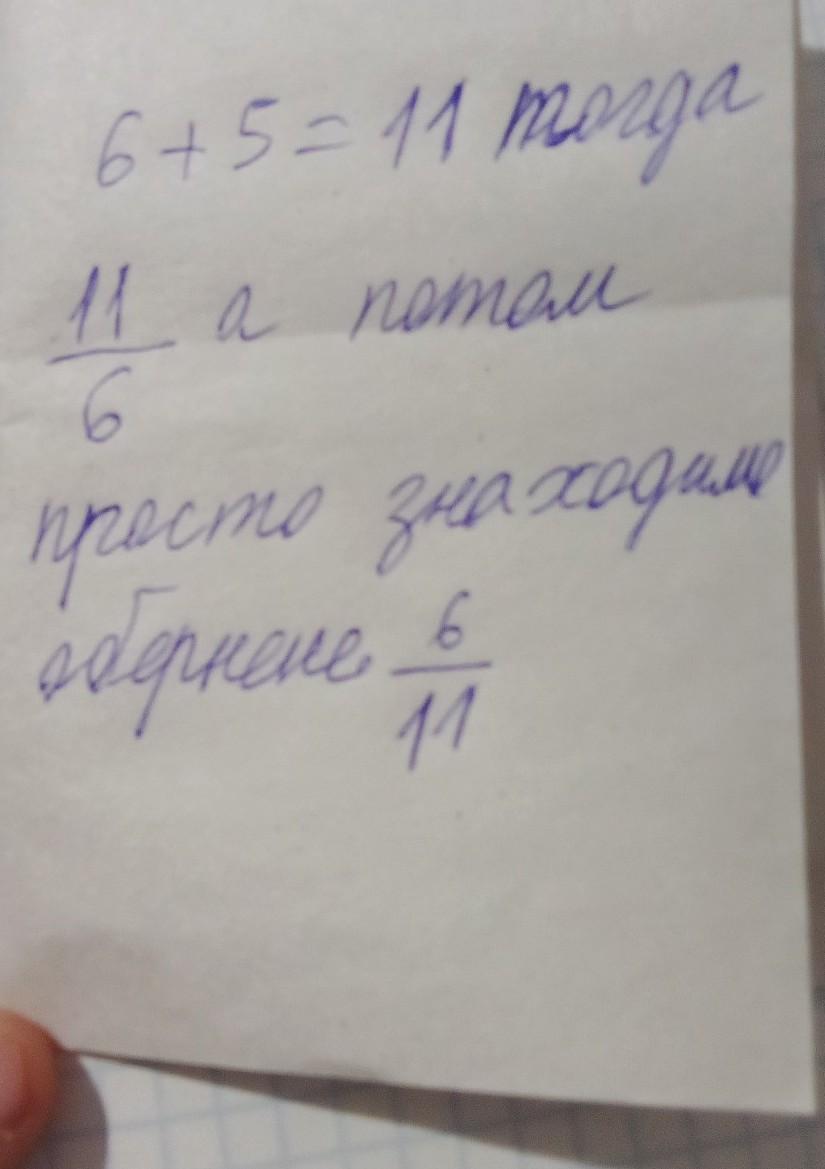 6 + 5 = 11 тогда
11/6 а потом
просто знаходимо
обернене 6/11